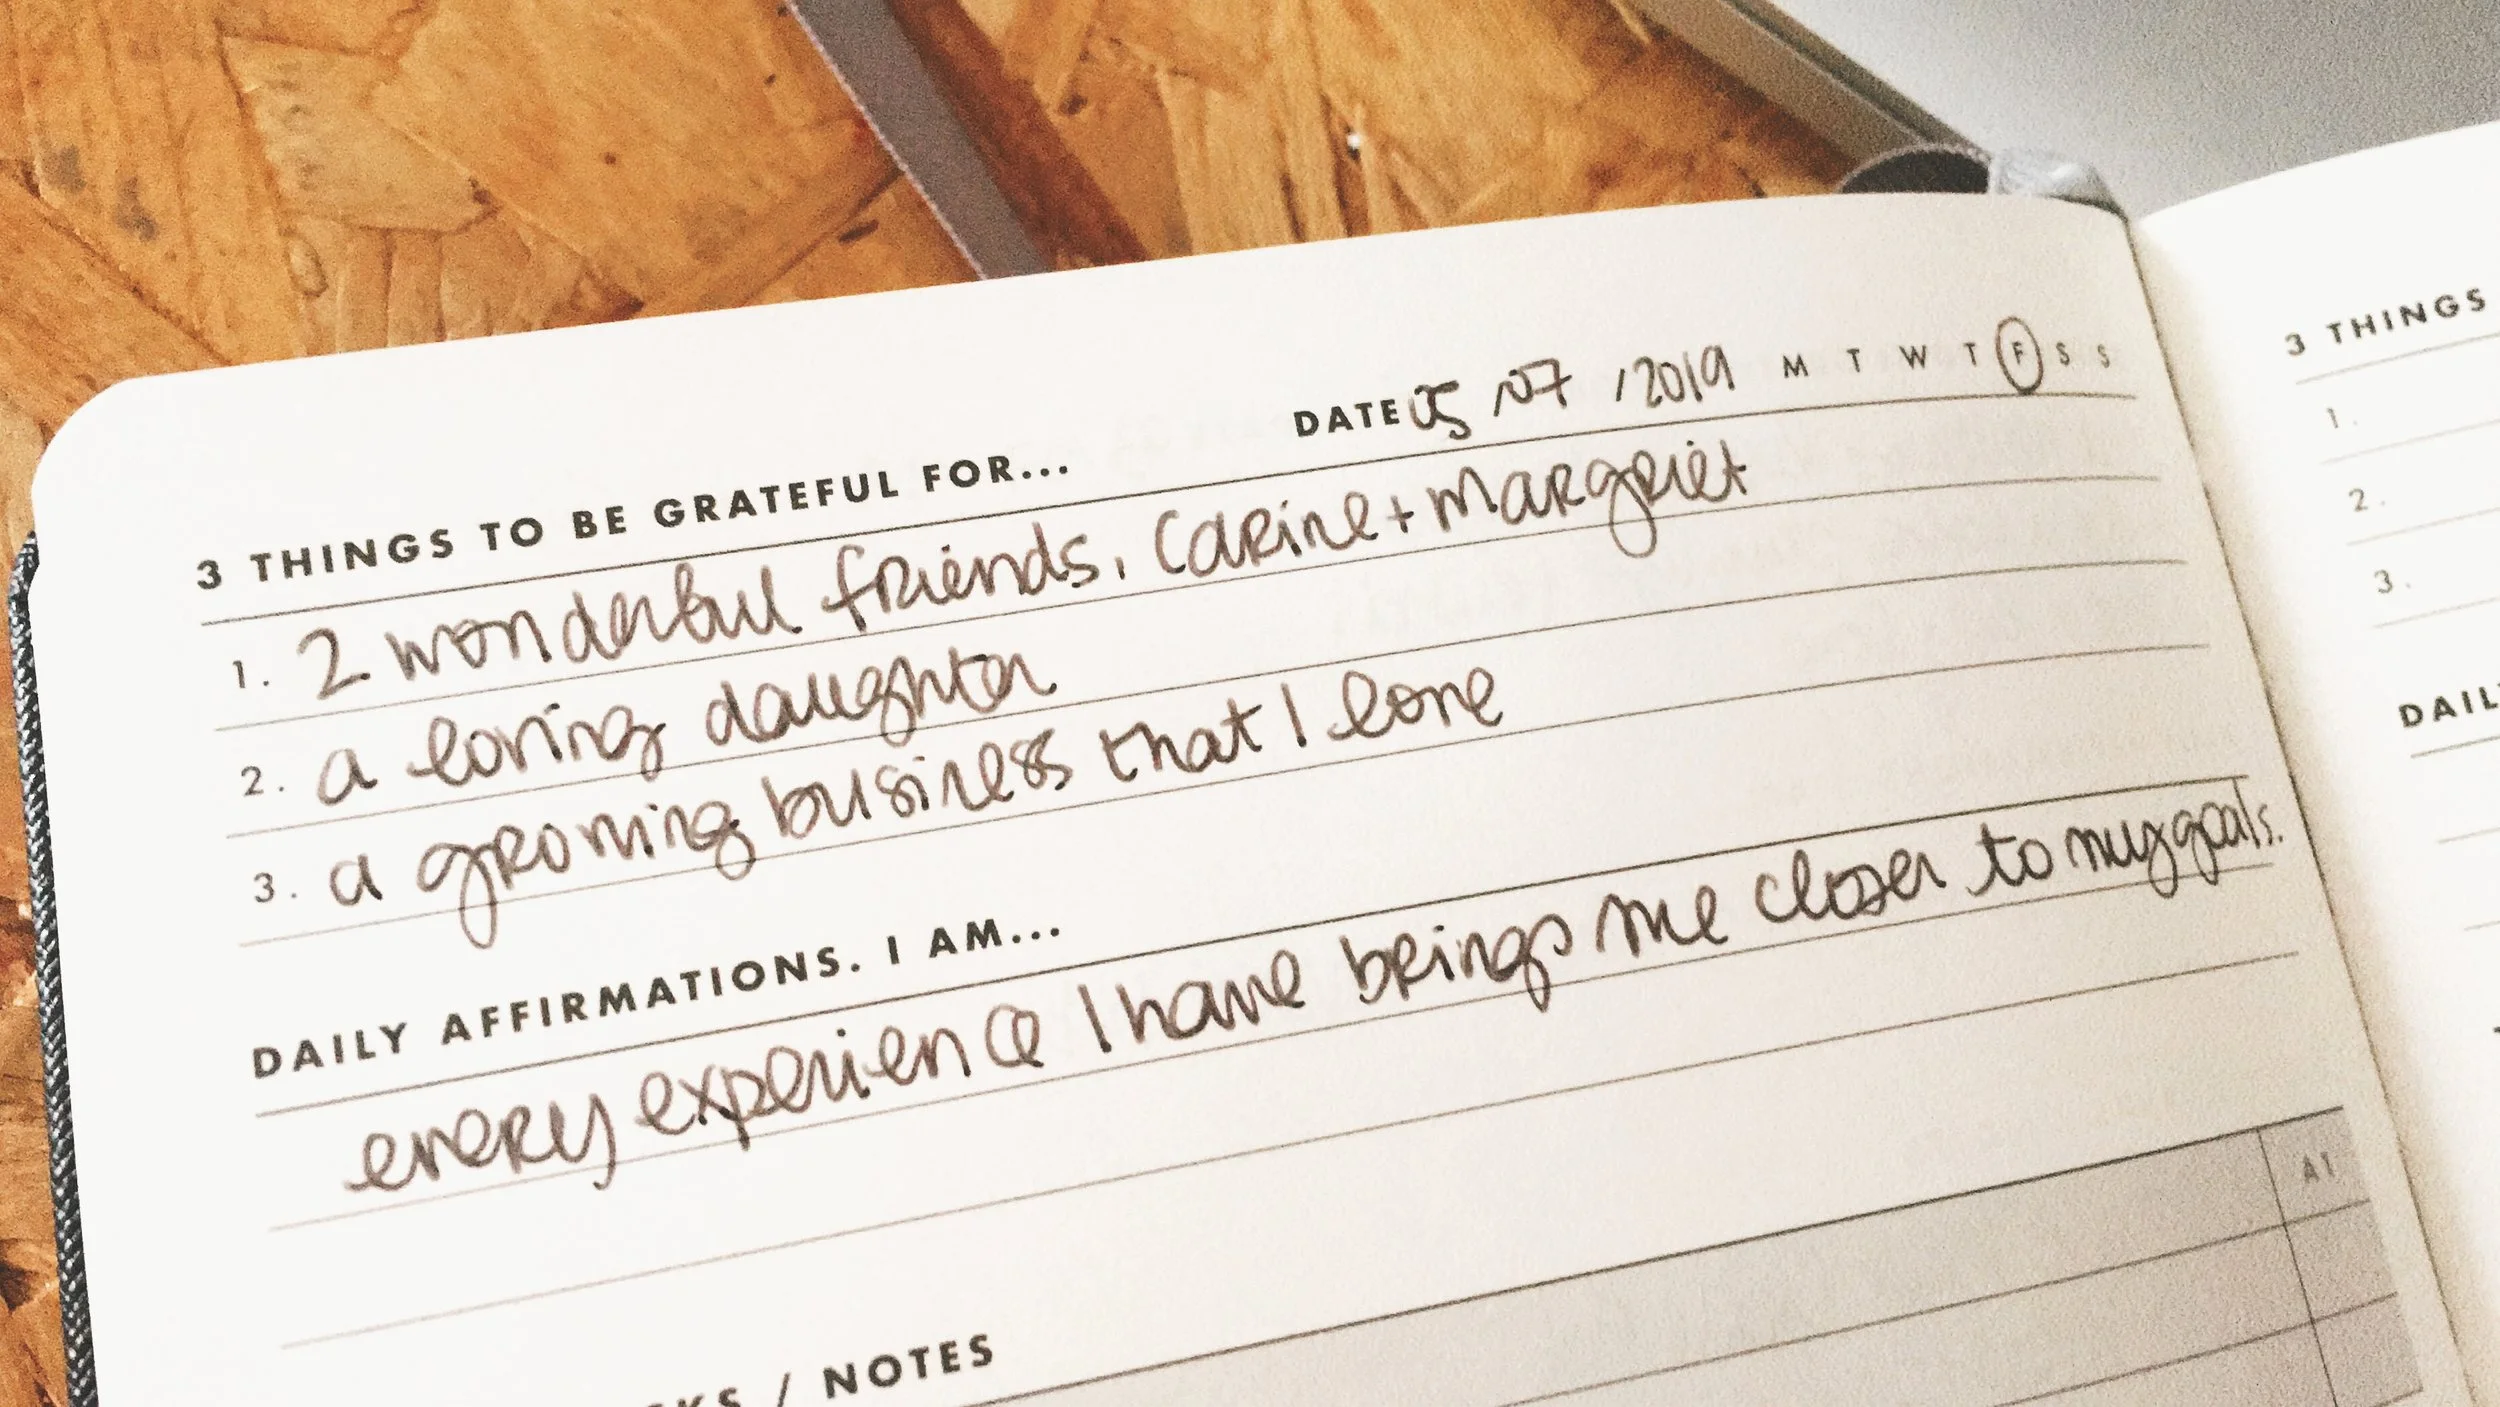 3 THINGS TO BE GRATEFUL FOR... DATE 05 / 07 / 2019 M T W T F S S
1. 2 wonderful friends, Carine + Margriet
2. a loving daughter
3. a growing business that I love
DAILY AFFIRMATIONS. I AM...
every experience I have brings me closer to my goals.
A1
/ NOTES
3 THINGS
1.
2.
3.